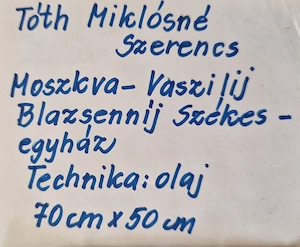 Tóth Miklósné
Szerencs
Moszkva - Vaszilij
Blazsennij Székes -
egyház
Technika: olaj
70 cm x 50 cm